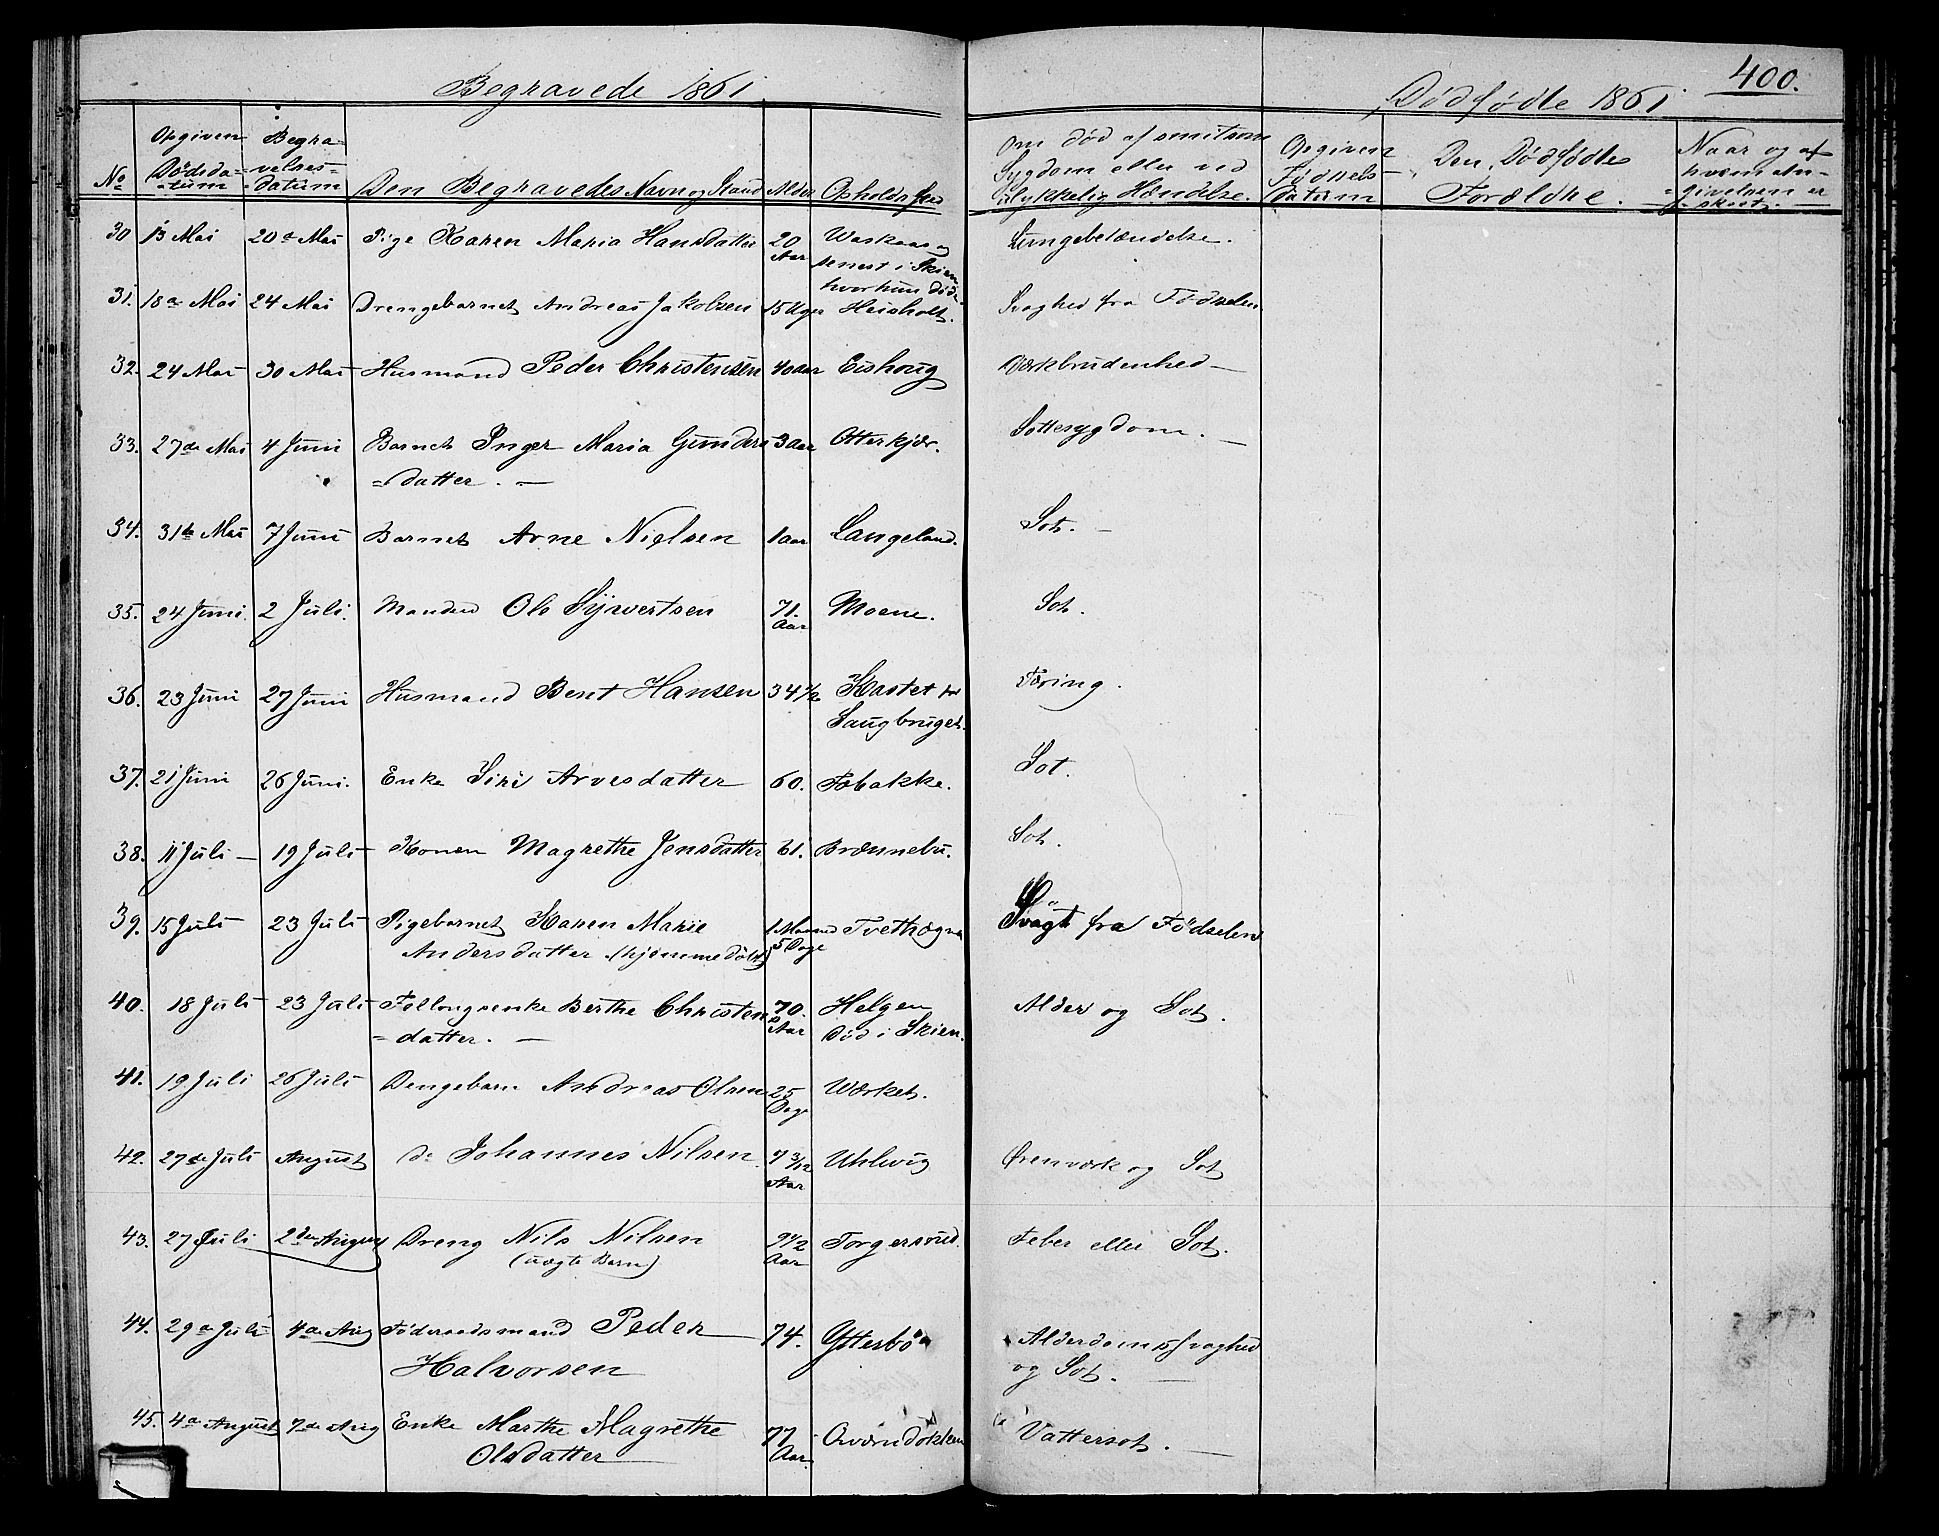 Begravede 1861
400.
Dødfødte 1861
No
Opgiven Dødsda=tum
Begra=velses=datum
Den Begravedes Navn og Stand
Alder
Opholdssted
Om død af smitsom Sygdom eller ved ulykkelig Hændelse.
Opgiven Fødsels=datum
Den Dødfødtes Forældre.
Naar og af hvem An=givelsen er skeet.
30 13 Mai 20de Mai Pige Karen Maria Hansdatter 20 Aar senest i Skien hvor hun døde. Lungebetændelse.
31. 18de Mai 24 Mai Drengebarnet Andreas Jakobsen 15 Uger Heisholt. Svaghed fra Fødselen.
32. 24 Mai 30 Mai Husmand Peder Christensen 40 aar Eishoug Værkbrudenhed —
33. 27de Mai 4 Juni Barnet Inger Maria Gunders 3 aar Otterkjær. Sottesygdom. —
=datter. —
34. 31te Mai 7 Juni Barnet Arne Nielsen 1 aar Langeland. Sot. —
35. 24 Juni. 2 Juli. Manden Ole Syvertsen 71. Aar Moene. Sot.
36. 23 Juni 27 Juni Husmand Bent Hansen 34 1/2 Kastet Saugbruget. Tæring.
37. 21 Juni 26 Juni. Enke Siri Arvesdatter 60. Fobakke. Sot.
38. 11 Juli — 19 Juli Konen Magrethe Jensdatter 61. Brænnebu. Sot.
39. 15 Juli 23 Juli Pigebarnet Karen Marie 1 Maaned 5 Dage Tvethogna Svagt fra Fødselen
Andersdatter (hjemmedøbt)
40. 18 Juli 23 Juli Follougsenke Berthe Christen 70. Aar Helgen Død i Skien. Alder og Sot.
=datter. —
41. 19 Juli 26 Juli Drengebarn Andreas Olsen 25 Dage Værket.
42. 27de Juli August do Johannes Nilsen 7 3/12 Aar Uhlevig Ørenværk og Sot
43. 27 Juli 2den August Dreng Nils Nilsen 9 1/2 Aar Torgersrud. Feber eller Sot.
(uægte Barn)
44. 29de Juli 4de Aug Føderaadsmand Peder 74. Ytterbø Alderdomssvaghed
Halvorsen og Sot. —
45. 4de August 7de Aug Enke Marthe Magrethe 77 Aar. Vattersot. —
Olsdatter